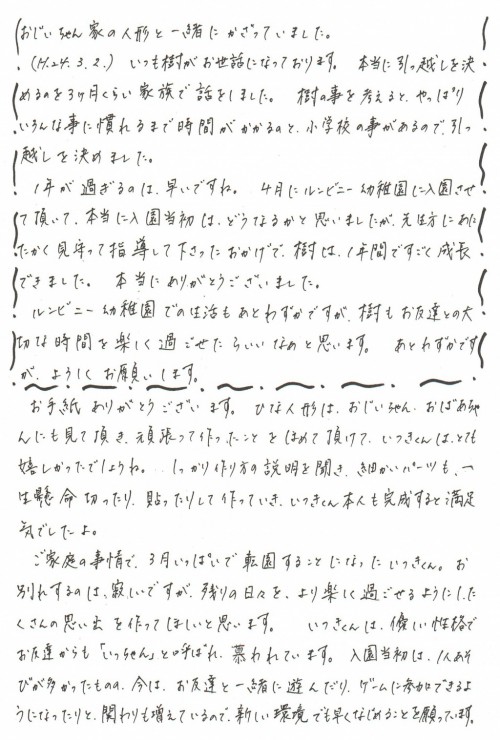 おじいちゃん家の人形と一緒にかざっていました。
(H.24.3.2.) いつも樹がお世話になっております。 本当に引っ越しを決
めるのを3ヶ月くらい家族で話をしました。 樹の事を考えると、やっぱり
いろんな事に慣れるまで時間がかかるのと、小学校の事があるので、引っ
越しを決めました。
1年が過ぎるのは、早いですね。 4月にルンビニー幼稚園に入園させ
て頂いて、本当に入園当初は、どうなるかと思いましたが、先生方にあた
たかく見守って指導して下さったおかげで、樹は、1年間ですごく成長
できました。 本当にありがとうございました。
ルンビニー幼稚園での生活もあとわずかですが、樹もお友達との大
切な時間を楽しく過ごせたらいいなぁと思います。 あとわずかです
が、よろしくお願いします。
お手紙ありがとうございます。 ひな人形は、おじいちゃん、おばあちゃ
んにも見て頂き、頑張って作ったことをほめて頂けて、いつきくんは、とても
嬉しかったでしょうね。 しっかり作り方の説明を聞き、細かいパーツも、一
生懸命切ったり、貼ったりして作っていき、いつきくん本人も完成すると満足
気でしたよ。
ご家庭の事情で、3月いっぱいで転園することになったいつきくん。お
別れするのは、寂しいですが、残りの日々を、より楽しく過ごせるようにし、た
くさんの思い出を作ってほしいと思います。 いつきくんは、優しい性格で
お友達からも「いっちゃん」と呼ばれ、慕われています。 入園当初は、1人あそ
びが多かったものの、今は、お友達と一緒に遊んだり、ゲームに参加できるよ
うになったりと、関わりも増えているので、新しい環境でも早くなじめることを願っています。